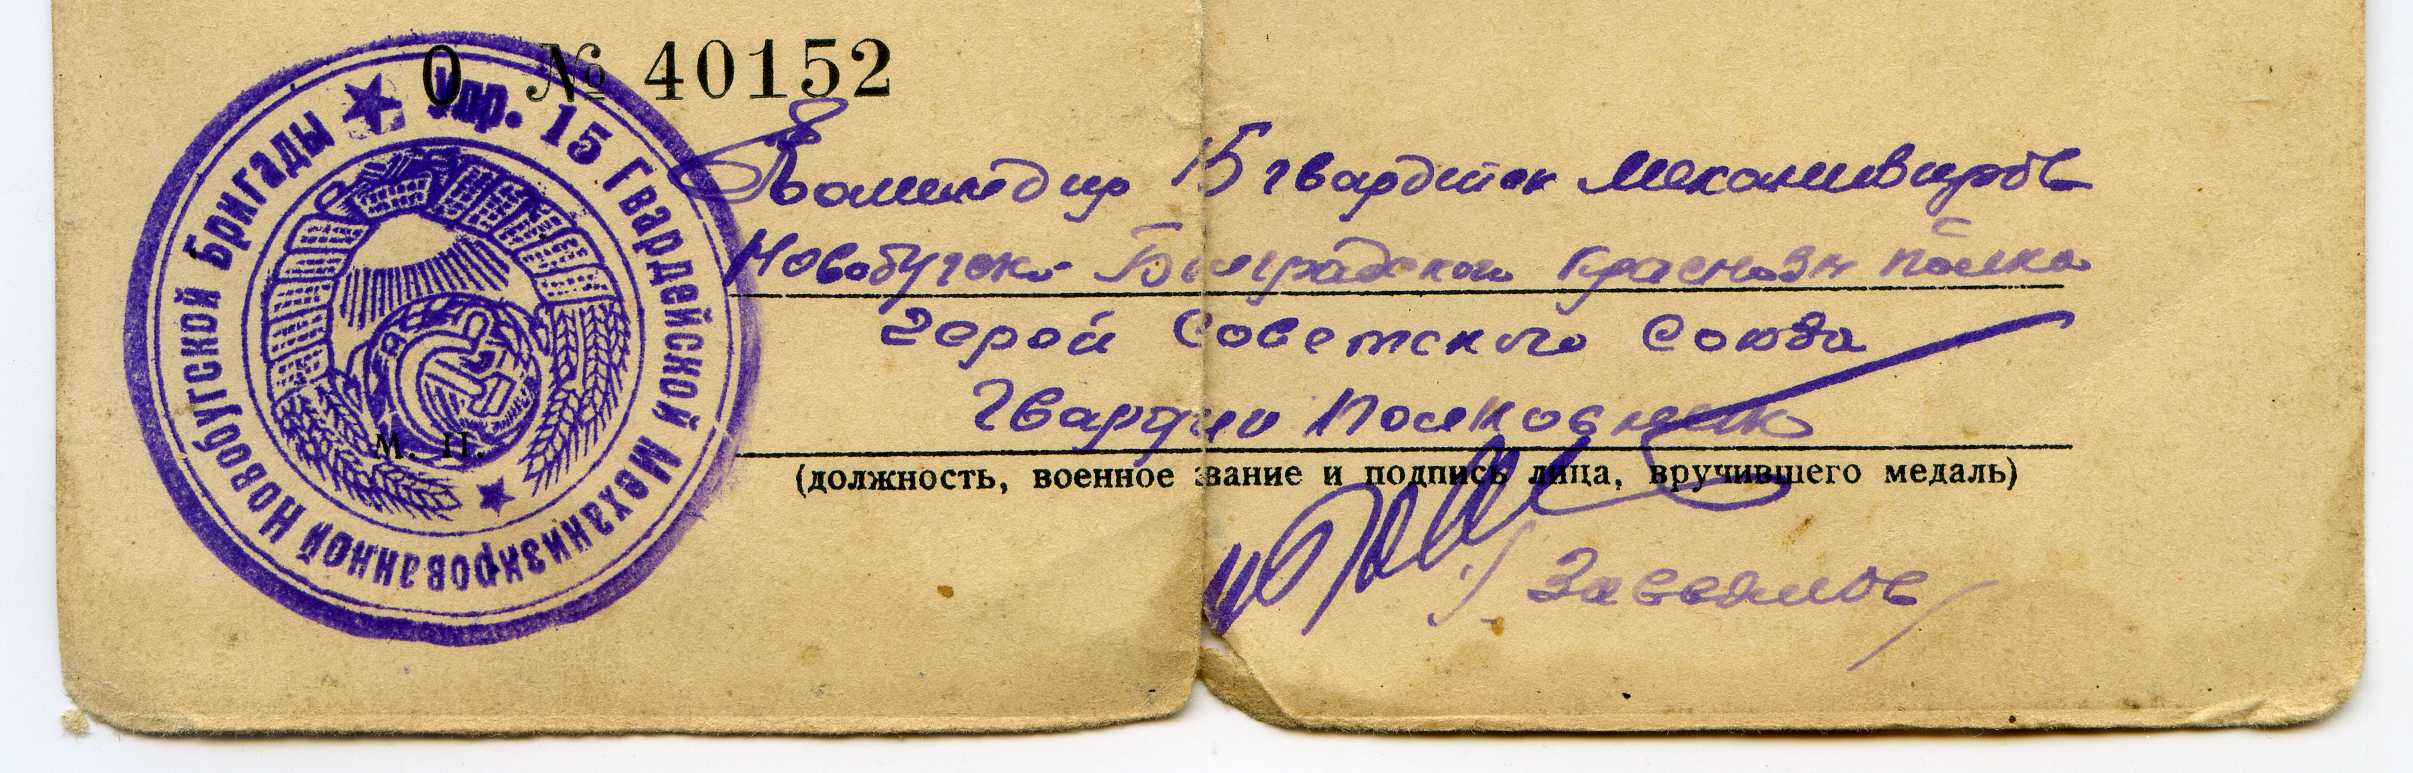 О № 40152
Упр. 15 Гвардейской Механизированной Новобугской Бригады
Командир 15 гвардейск механизиров
Новобугско Белградского краснозн полка
Герой Советского Союза
Гвардии полковник
М. П.
(должность, военное звание и подпись лица, вручившего медаль)